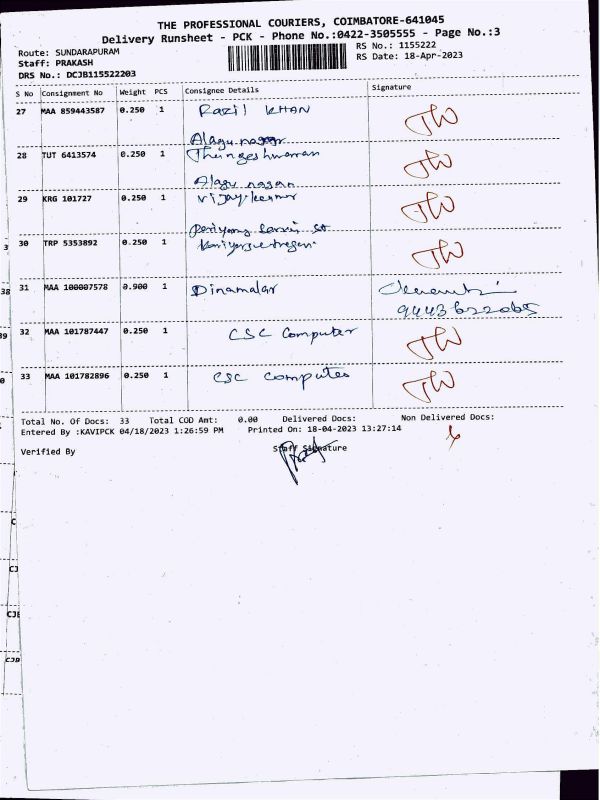 THE PROFESSIONAL COURIERS, COIMBATORE-641045
Delivery Runsheet - PCK - Phone No.:0422-3505555 - Page No.:3
Route: SUNDARAPURAM
RS No.: 1155222
Staff: PRAKASH
RS Date: 18-Apr-2023
DRS No.: DCJB115522203
S No Consignment No Weight PCS Consignee Details Signature
27 MAA 859443587 0.250 1 Razil KHAN
Alagu nagar
28 TUT 6413574 0.250 1
Alagu nagar
29 KRG 101727 0.250 1 Vijay kumar
30 TRP 5353892 0.250 1
31 MAA 100007578 0.900 1 Dinamalar
9443622065
32 MAA 101787447 0.250 1 CSC Computer
33 MAA 101782896 0.250 1 CSC Computer
Total No. Of Docs: 33 Total COD Amt: 0.00 Delivered Docs: Non Delivered Docs:
Entered By :KAVIPCK 04/18/2023 1:26:59 PM Printed On: 18-04-2023 13:27:14
Verified By Staff Signature